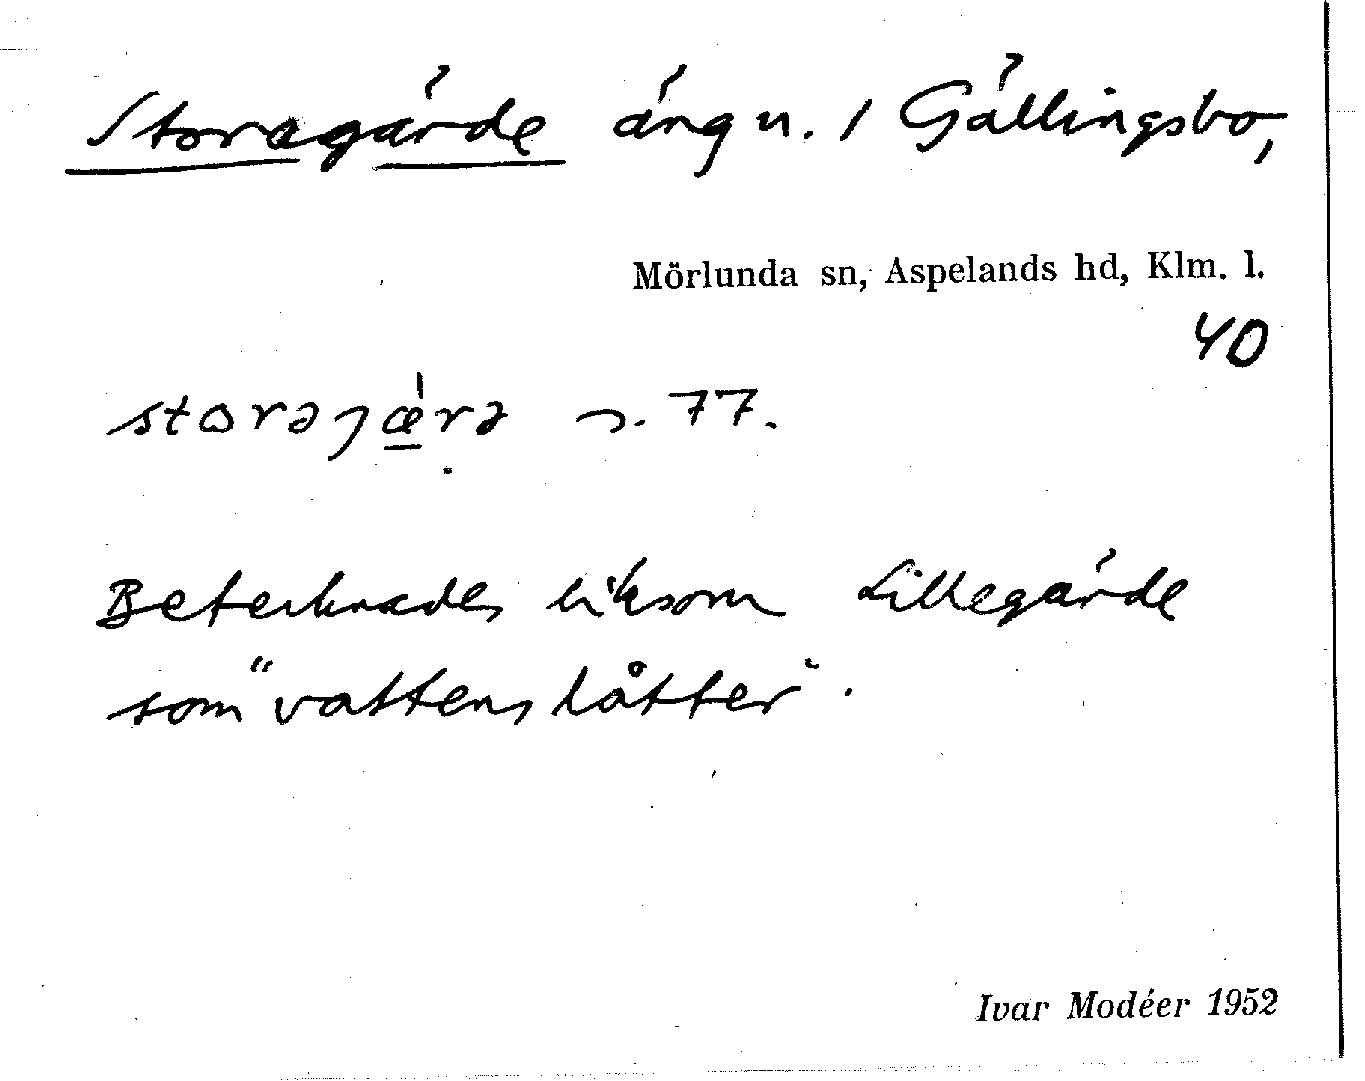 Storegärde äng n. / Gällingsbo,
Mörlunda sn, Aspelands hd, Klm. l.
40
storəjǽ̠rə n. 77.
Betecknades liksom Lillegärde
som "vattenslåtter".
Ivar Modéer 1952